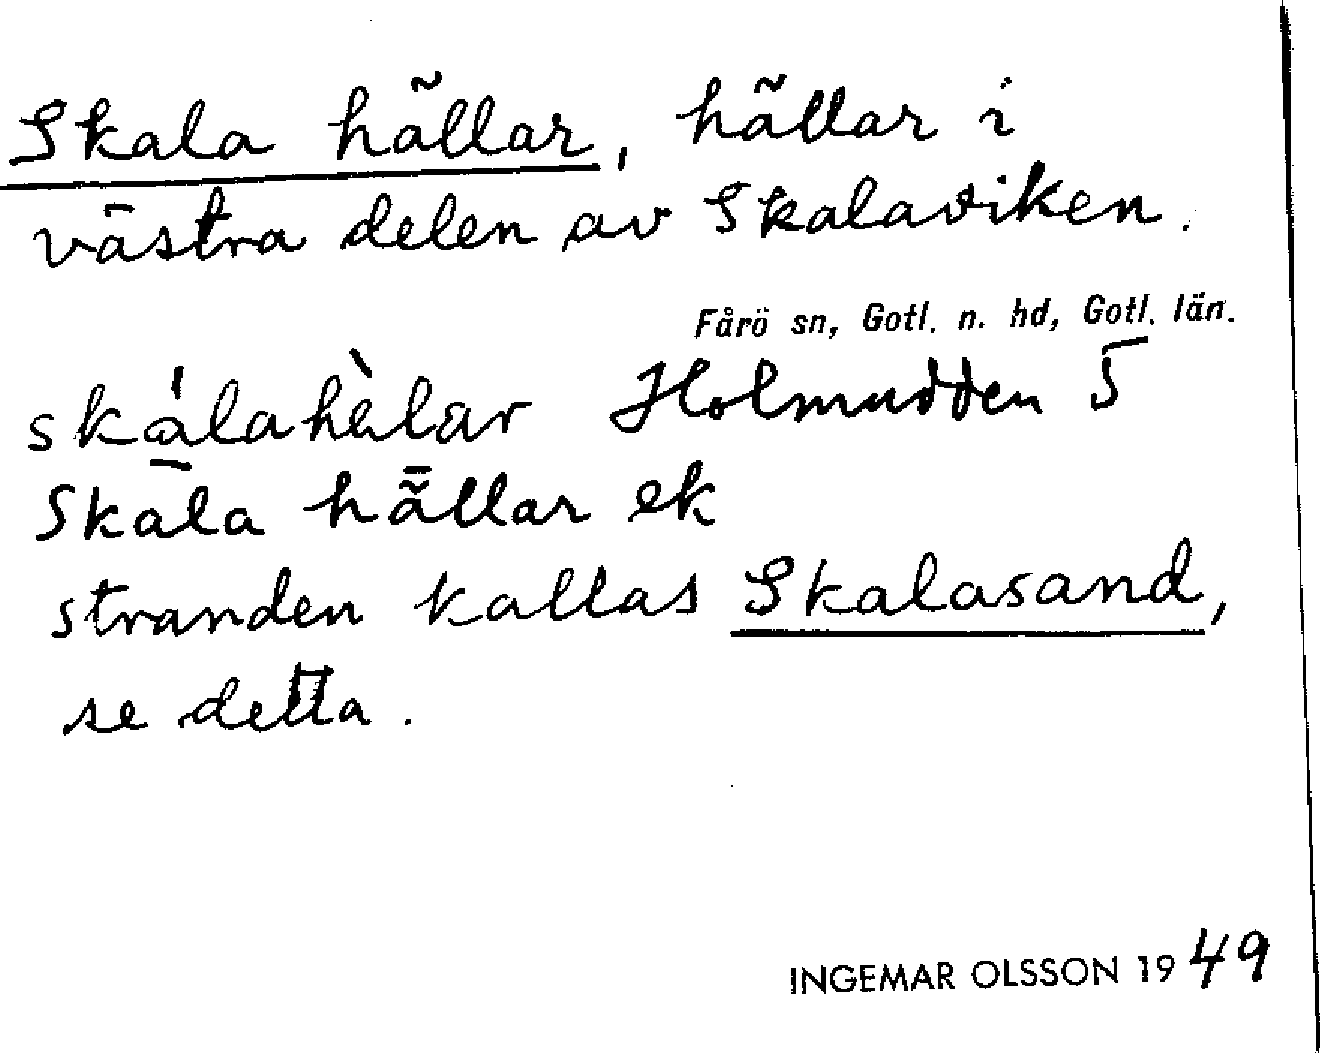 Skala hällar, hällar i
västra delen av Skalaviken.
Fårö sn, Gotl. n. hd, Gotl. län.
skálahὲlar Holmudden 5
Skāla hällar ek
stranden kallas Skalasand,
se detta.
INGEMAR OLSSON 1949